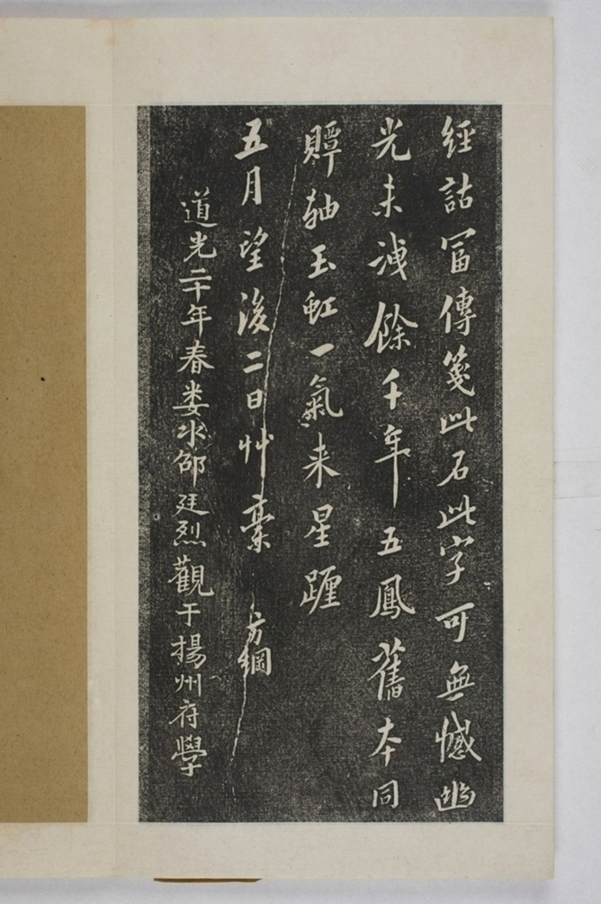 經詁冨傳箋此石此字可無憾幽
光未洩餘千年五鳳舊本同
贉軸玉虹一氣来星躔
五月望後二日艸藁 方綱
道光二十年春娄水邵廷烈觀于揚州府學